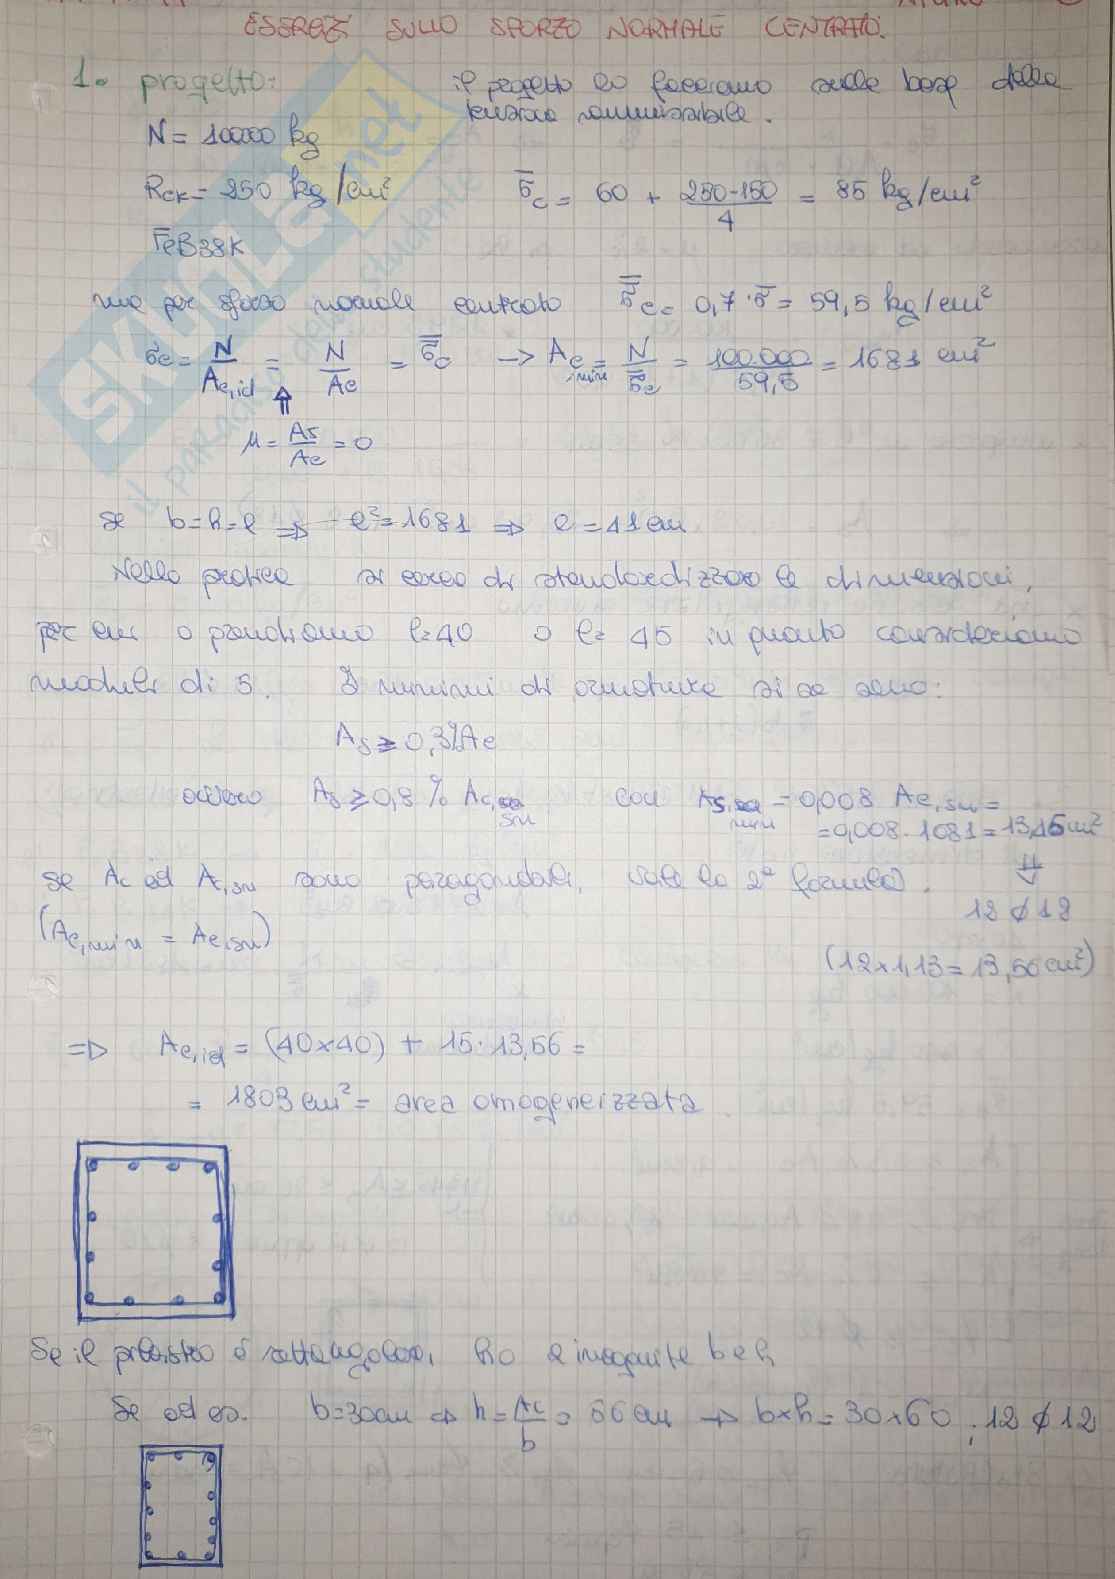 ESERCIZI SULLO SFORZO NORMALE CENTRATO.
1. progetto: il progetto lo facciamo sulla base della
tensione ammissibile.
N = 100000 kg
Rck = 250 kg/cm² σ̄c = 60 + (250-150)/4 = 85 kg/cm²
FeB38K
ma per sforzo normale centrato σ̿c = 0,7·σ̄ = 59,5 kg/cm²
σc = N/Ac,id = N/Ac = σ̿c → Ac,min = N/σ̿c = 100.000/59,5 = 1681 cm²
μ = As/Ac = 0
se b=h=l ⇒ l²=1681 ⇒ l=41cm
Nella pratica si cerca di standardizzare le dimensioni,
per cui o prendiamo l=40 o l=45 in quanto consideriamo
moduli di 5. I minimi di armatura si sa sono:
As ≥ 0,3%Ac
ovvero As ≥ 0,8% Ac,sn con As,min = 0,008 Ac,sn =
= 0,008·1681 = 13,45 cm²
⇓
se Ac ed Ac,sn sono paragonabili, vale la 2ª formula.
12 ∅ 12
(Ac,min = Ac,sn)
(12x1,13 = 13,56 cm²)
⇒ Ac,id = (40x40) + 15·13,56 =
= 1803 cm² = area omogeneizzata
Se il pilastro è rettangolare, ho 2 incognite b e h
Se ad es. b=30cm ⇒ h = Ac/b = 56 cm → bxh = 30x60; 12 ∅ 12
SKUOLA.net
il paradiso dello studente